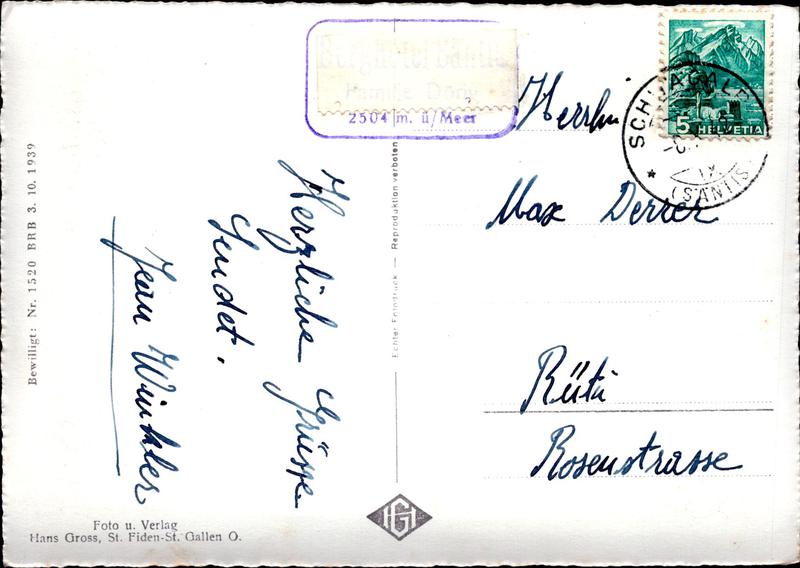 Berghotel Säntis
Familie Dörig
2504 m. ü/Meer
5 HELVETIA
SCHWÄGALP
IX
(SÄNTIS)
Herrlin
Max Derrer
Rüti
Rosenstrasse
Herzliche Grüsse
Sendet.
Jean Winkler
Echter Fotodruck — Reproduktion verboten
Bewilligt: Nr. 1520 BRB 3. 10. 1939
Foto u. Verlag
Hans Gross, St. Fiden-St. Gallen O.
HG